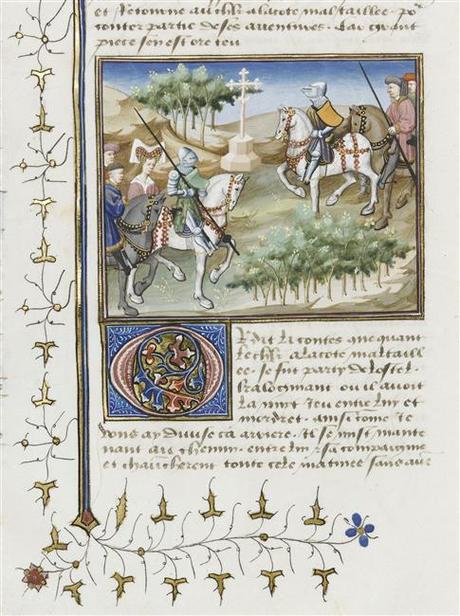 et retourne au chlr a la cote maltaillee po
conter partie de ses auentures. Car grant
piece sen est ore teu
Or dit li contes que quant
le chlr a la cote maltaill
ee se fut party de lostel
ou il auoit
la nuyt Jeu entre luy et
mordret. ainsi come Je
vous ay deuise ca arriere. Il se mist mainte
nant au chemin entre luy et sa compaignie
et cheuaucherent toute cele matinee sans aue